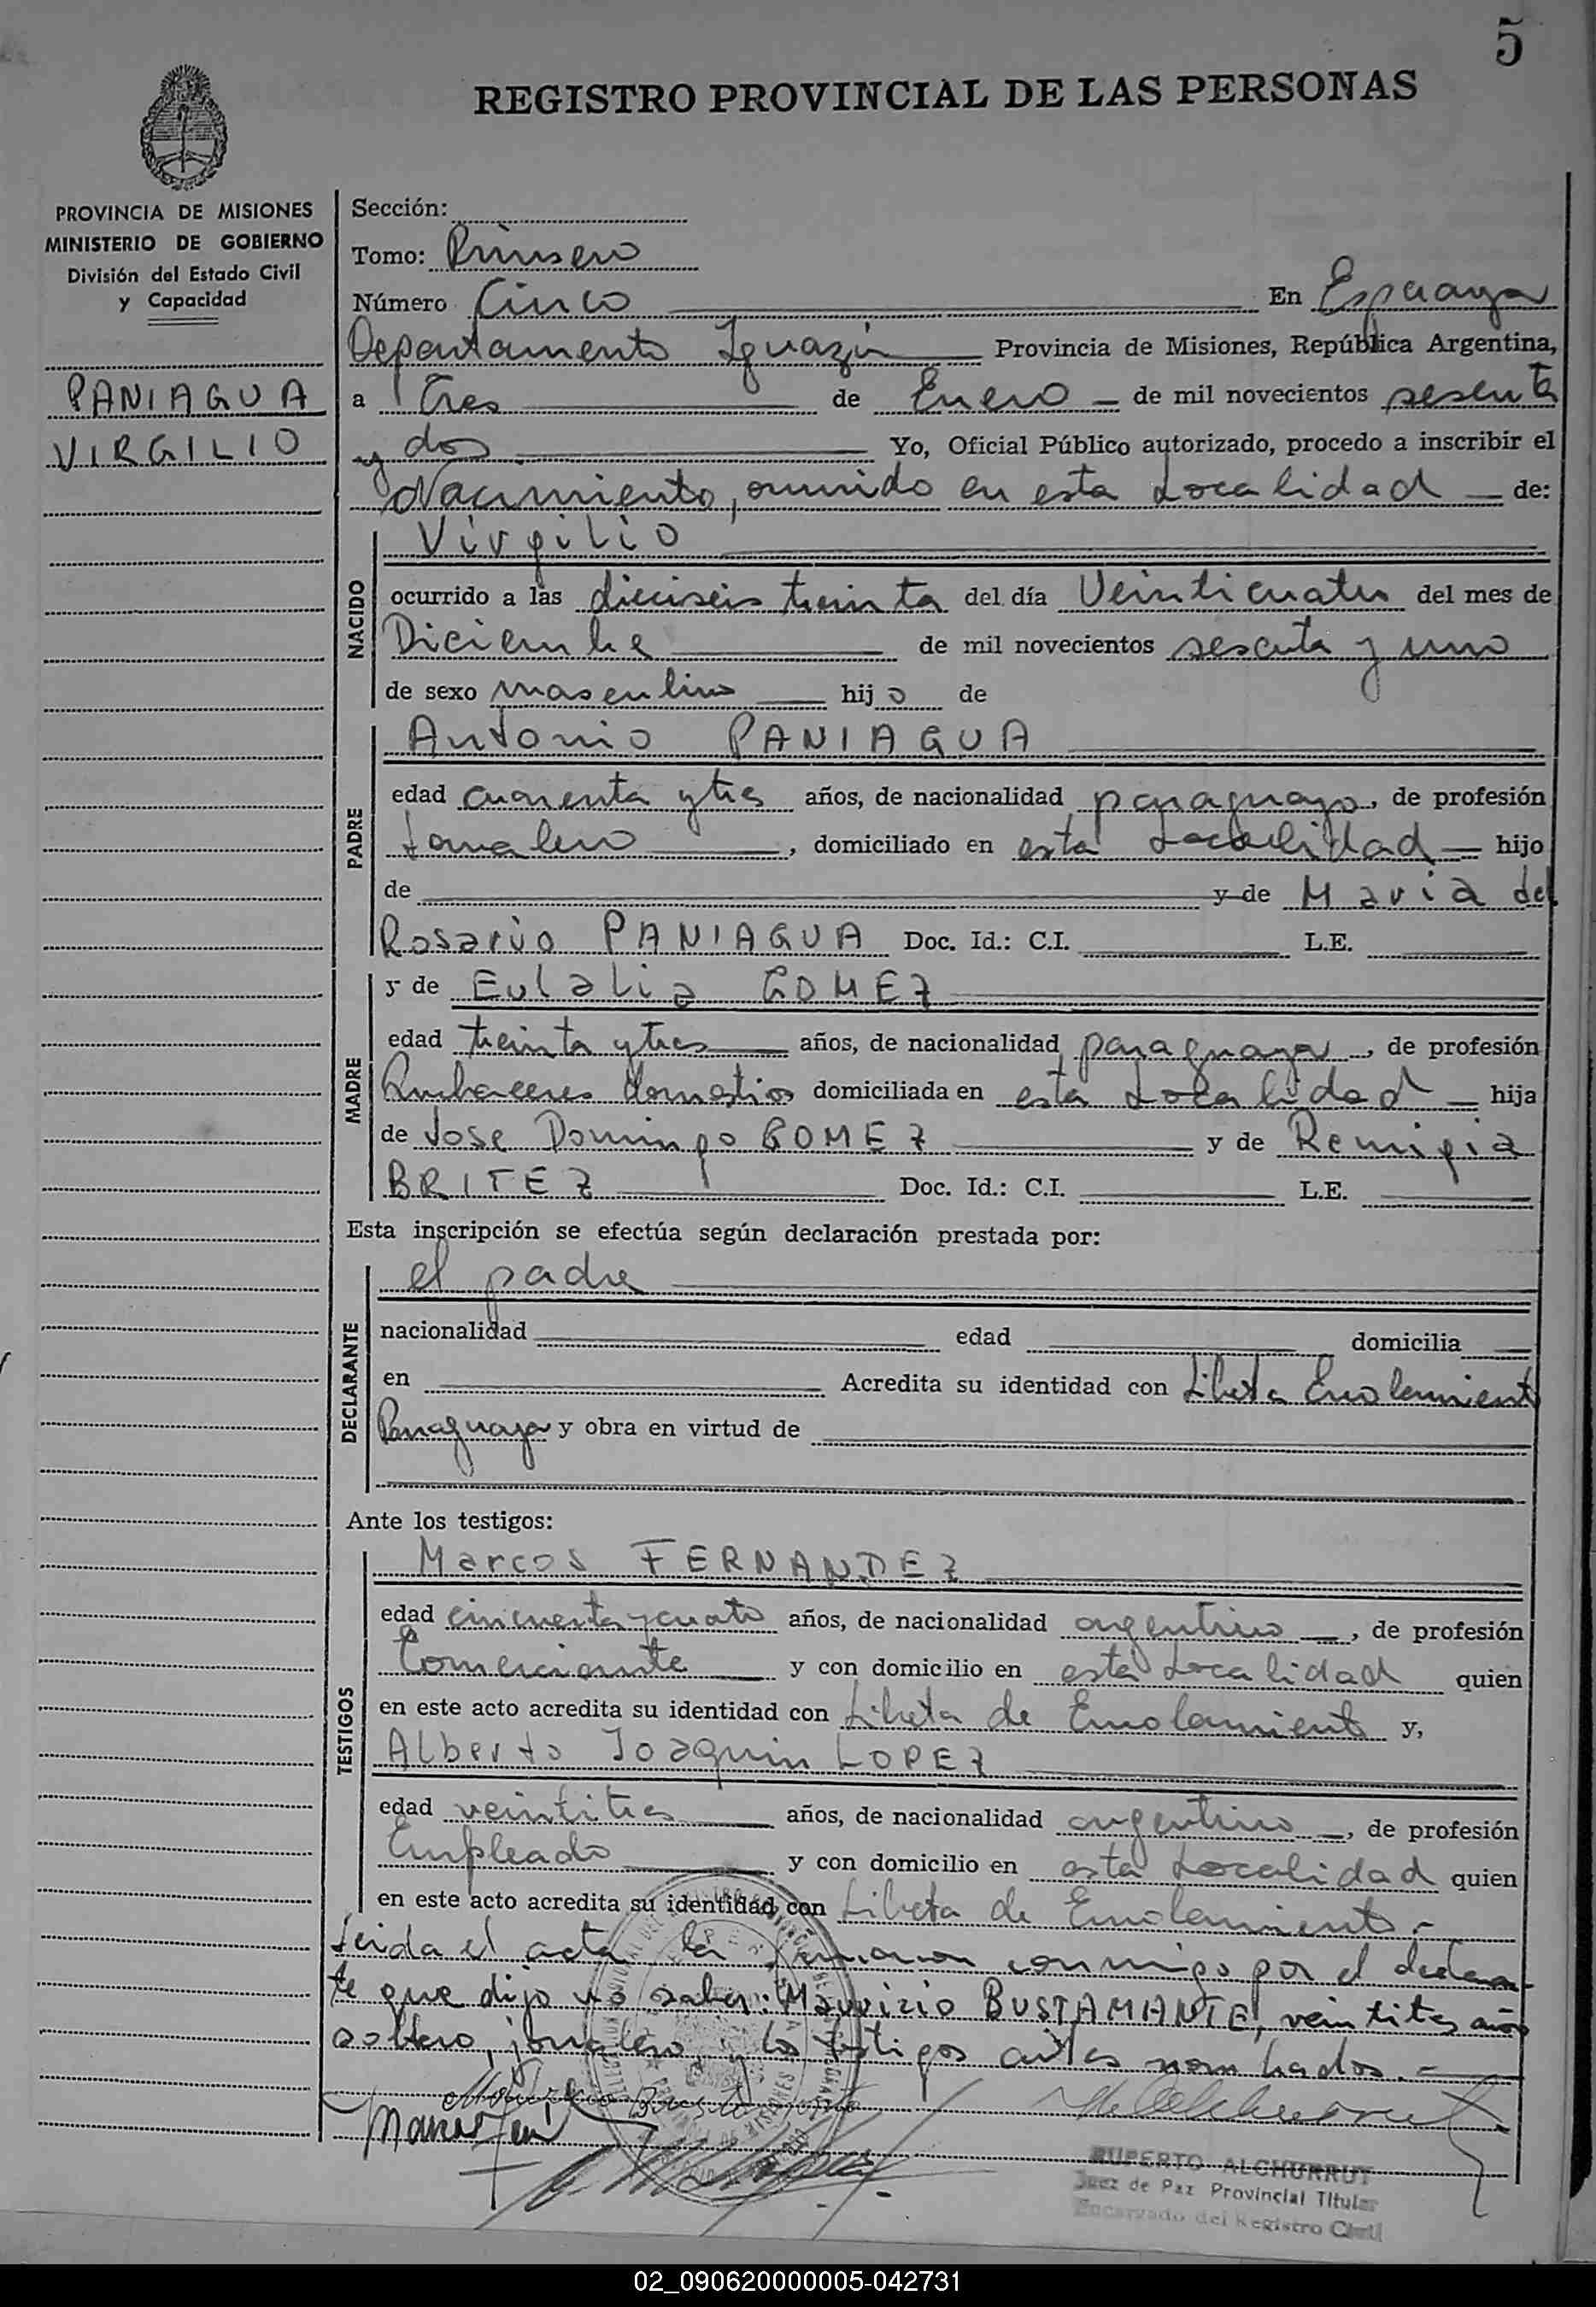 5
REGISTRO PROVINCIAL DE LAS PERSONAS
PROVINCIA DE MISIONES
MINISTERIO DE GOBIERNO
División del Estado Civil
y Capacidad
PANIAGUA
VIRGILIO
Sección:
Tomo: Primero
Número Cinco En Esperanza
Departamento Iguazú Provincia de Misiones, República Argentina,
a Tres de Enero de mil novecientos sesenta
y dos Yo, Oficial Público autorizado, procedo a inscribir el
Nacimiento, ocurrido en esta Localidad de:
NACIDO
Virgilio
ocurrido a las dieciseis treinta del día Veinticuatro del mes de
Diciembre de mil novecientos sesenta y uno
de sexo masculino hijo de
PADRE
Antonio PANIAGUA
edad cuarenta y tres años, de nacionalidad paraguayo, de profesión
Jornalero, domiciliado en esta Localidad hijo
de y de Maria del
Rosario PANIAGUA Doc. Id.: C.I. L.E.
MADRE
y de Eulalia GOMEZ
edad treinta y tres años, de nacionalidad paraguaya, de profesión
Quehaceres domesticos domiciliada en esta Localidad hija
de Jose Domingo GOMEZ y de Remigia
BRITEZ Doc. Id.: C.I. L.E.
Esta inscripción se efectúa según declaración prestada por:
DECLARANTE
el padre
nacionalidad edad domicilia
en Acredita su identidad con Libreta Enrolamiento
Paraguaya y obra en virtud de
Ante los testigos:
TESTIGOS
Marcos FERNANDEZ
edad cincuenta y cuatro años, de nacionalidad argentino, de profesión
Comerciante y con domicilio en esta Localidad quien
en este acto acredita su identidad con Libreta de Enrolamiento y,
Alberto Joaquin LOPEZ
edad veintitres años, de nacionalidad argentino, de profesión
Empleado y con domicilio en esta Localidad quien
en este acto acredita su identidad con Libreta de Enrolamiento.-
Leida el acta la firmaron conmigo por el declaran-
te que dijo no saber: Maurizio BUSTAMANTE, veintitres años
soltero, jornalero, y los testigos antes nombrados.-
RUPERTO ALCHURRUT
Juez de Paz Provincial Titular
Encargado del Registro Civil
02_090620000005-042731